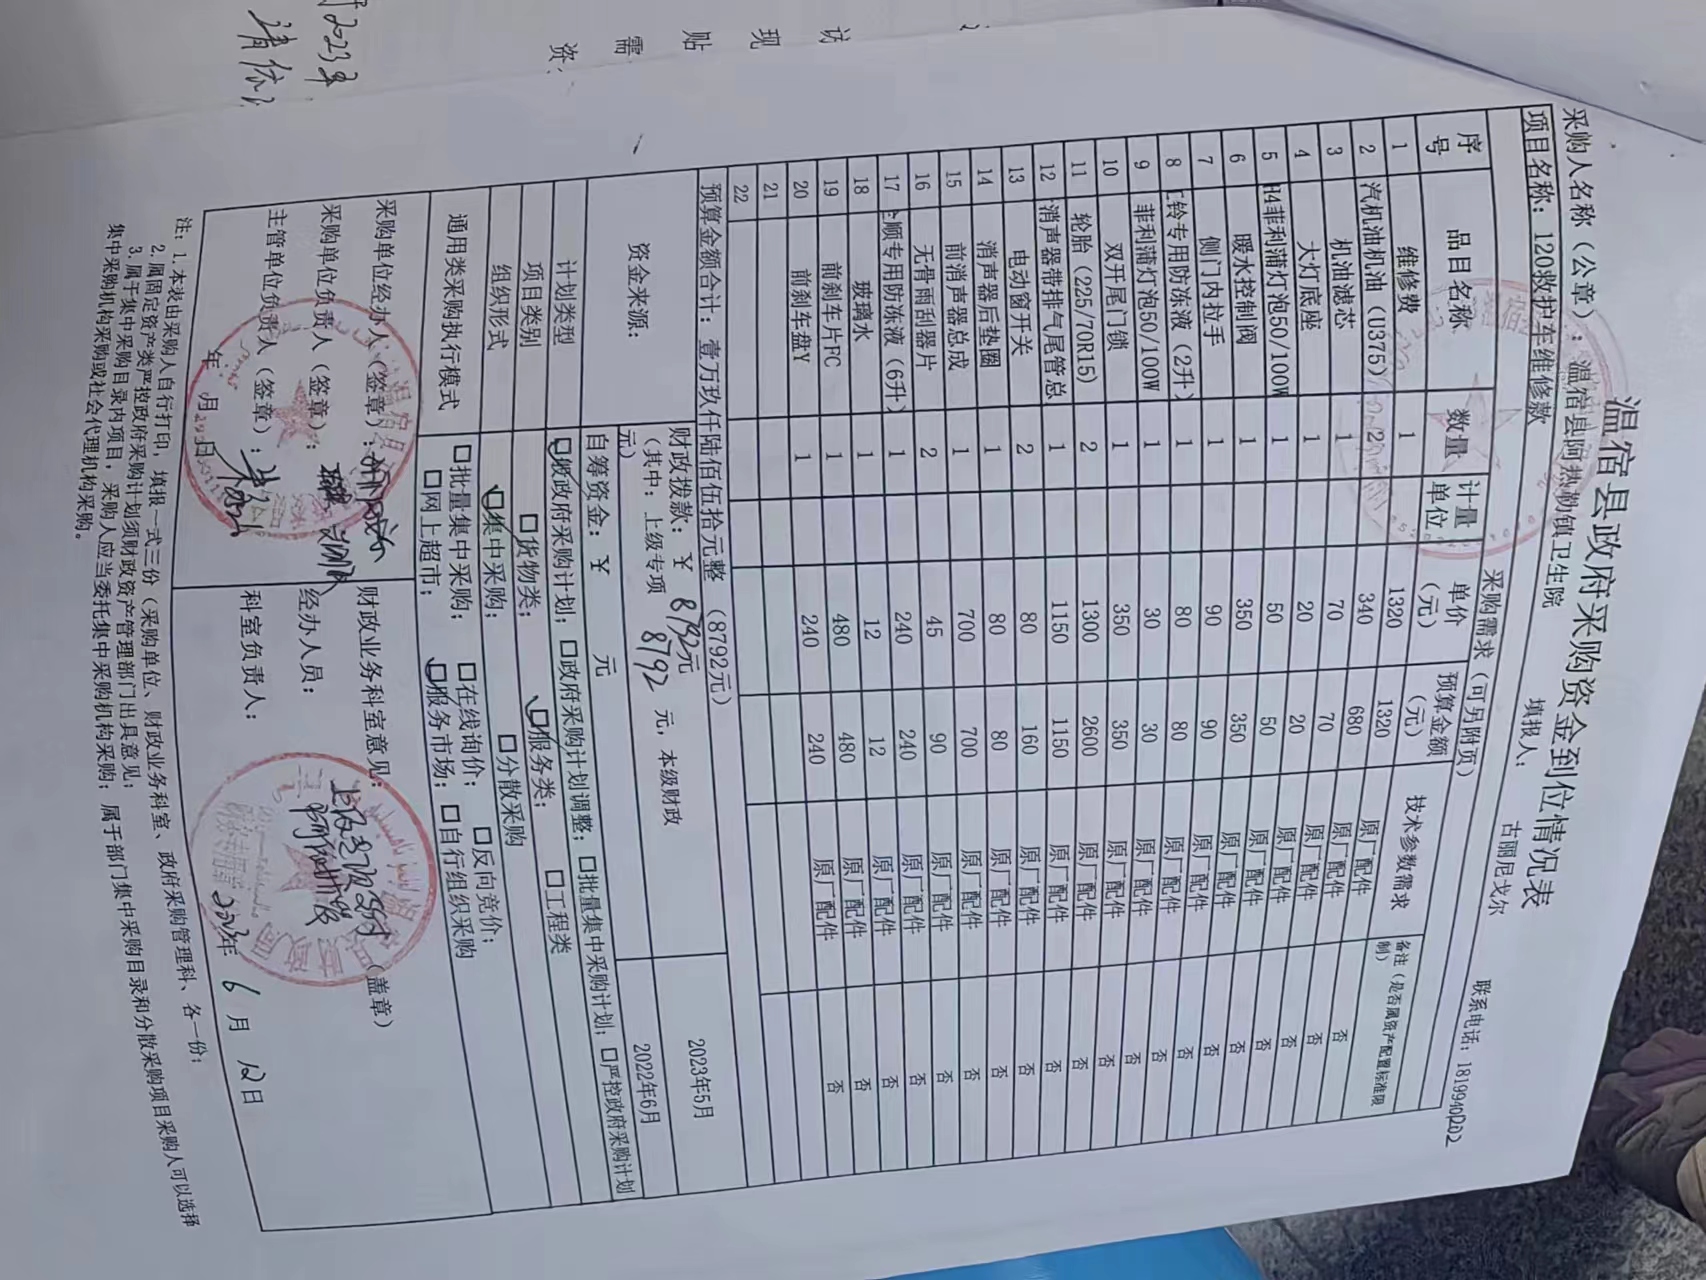 温宿县政府采购资金到位情况表
采购人名称（公章）：温宿县阿热勒镇卫生院 填报人： 古丽尼戈尔 联系电话：18199400202
项目名称：120救护车维修款
序号 品目名称 采购需求（可另附页）
数量 计量单位 单价（元） 预算金额（元） 技术参数需求 备注（是否属资产配置标准限制）
1 维修费 1 1320 1320
2 汽机油机油（U375） 2 340 680 原厂配件
3 机油滤芯 1 70 70 原厂配件 否
4 大灯底座 1 20 20 原厂配件 否
5 H4菲利蒲灯泡50/100W 1 50 50 原厂配件 否
6 暖水控制阀 1 350 350 原厂配件 否
7 侧门内拉手 1 90 90 原厂配件 否
8 铃专用防冻液（2升） 1 80 80 原厂配件 否
9 菲利蒲灯泡50/100W 1 30 30 原厂配件 否
10 双开尾门锁 1 350 350 原厂配件 否
11 轮胎（225/70R15） 2 1300 2600 原厂配件 否
12 消声器带排气尾管总 1 1150 1150 原厂配件 否
13 电动窗开关 2 80 160 原厂配件 否
14 消声器后垫圈 1 80 80 原厂配件 否
15 前消声器总成 1 700 700 原厂配件 否
16 无骨雨刮器片 2 45 90 原厂配件 否
17 顺专用防冻液（6升） 1 240 240 原厂配件 否
18 玻璃水 1 12 12 原厂配件 否
19 前刹车片FC 1 480 480 原厂配件 否
20 前刹车盘Y 1 240 240 原厂配件 否
21
22
预算金额合计：壹万玖仟陆佰伍拾元整 （8792元）
资金来源： 财政拨款：￥ 8792元 2023年5月
（其中：上级专项 8792 元，本级财政 元）
自筹资金：￥ 元 2022年6月
计划类型 □政府采购计划；□政府采购计划调整；□批量集中采购计划；□严控政府采购计划
项目类别 □货物类； □服务类； □工程类
组织形式 □集中采购； □分散采购
通用类采购执行模式 □批量集中采购； □在线询价； □反向竞价；
□网上超市； □服务市场； □自行组织采购
采购单位经办人（签章）： 财政业务科室意见： （盖章）
采购单位负责人（签章）： 经办人员：
主管单位负责人（签章）： 科室负责人：
年 月 日 2023年 6 月 12日
注：1.本表由采购人自行打印，填报一式三份（采购单位、财政业务科室、政府采购管理科、各一份；
2.属固定资产类严控政府采购计划须财政资产管理部门出具意见；
3.属于集中采购目录内项目，采购人应当委托集中采购机构采购；属于部门集中采购目录和分散采购项目采购人可以选择
集中采购机构采购或社会代理机构采购。